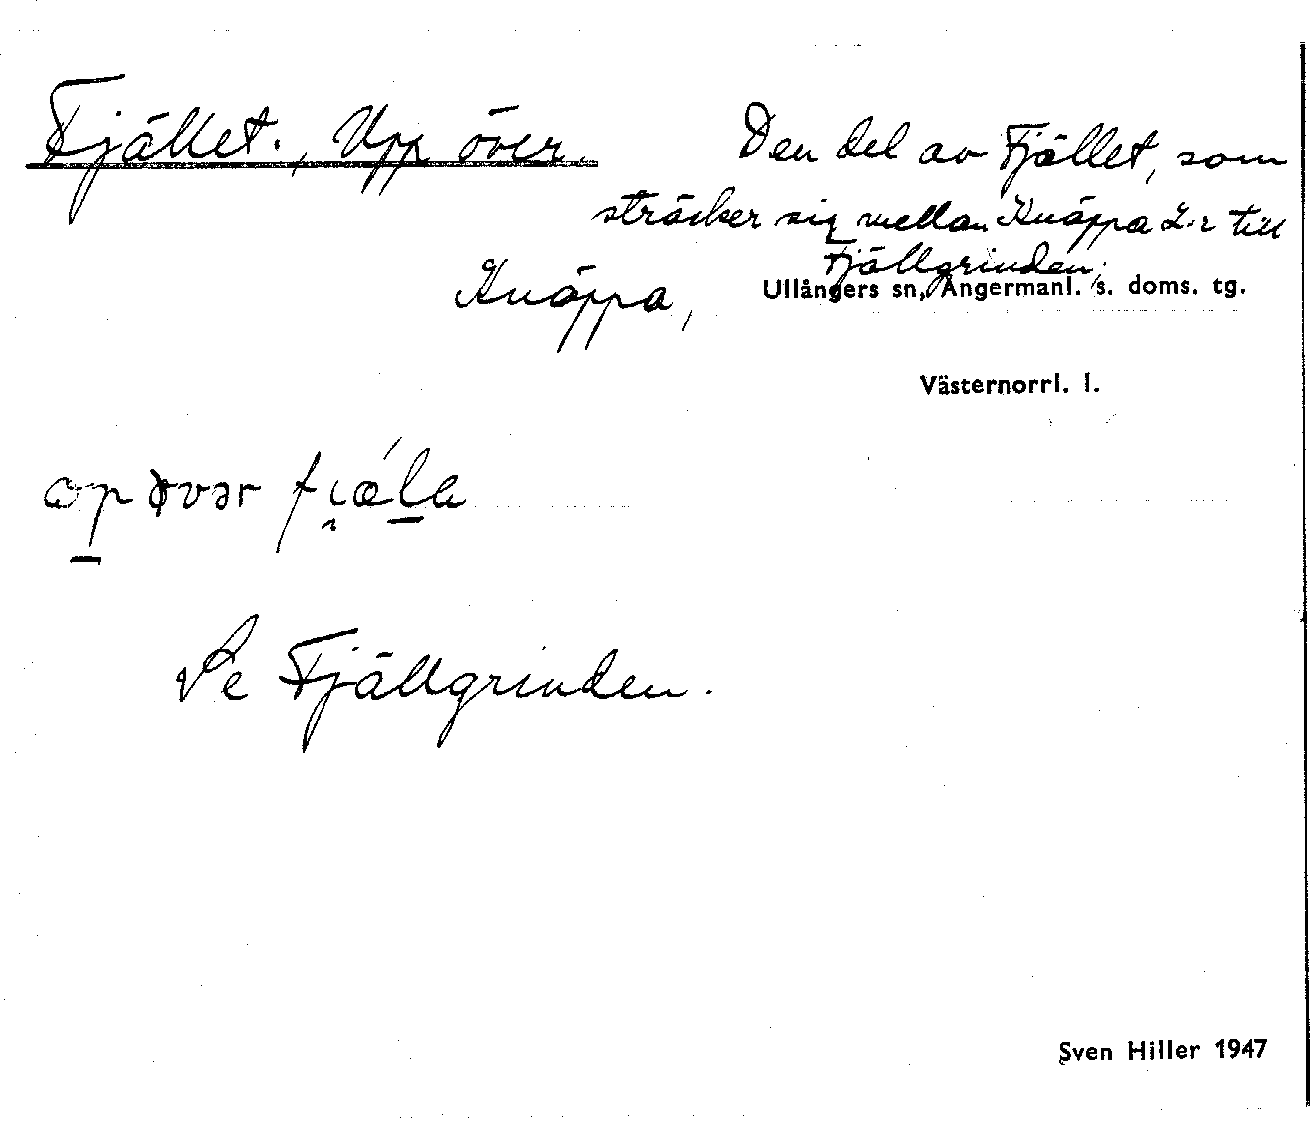 Fjället., Upp över.
Den del av Fjället, som
sträcker sig mellan Knäppa 2:r till
Fjällgrinden,
Knäppa,
Ullångers sn, Ångermanl. s. doms. tg.
Västernorrl. l.
Se Fjällgrinden.
Sven Hiller 1947